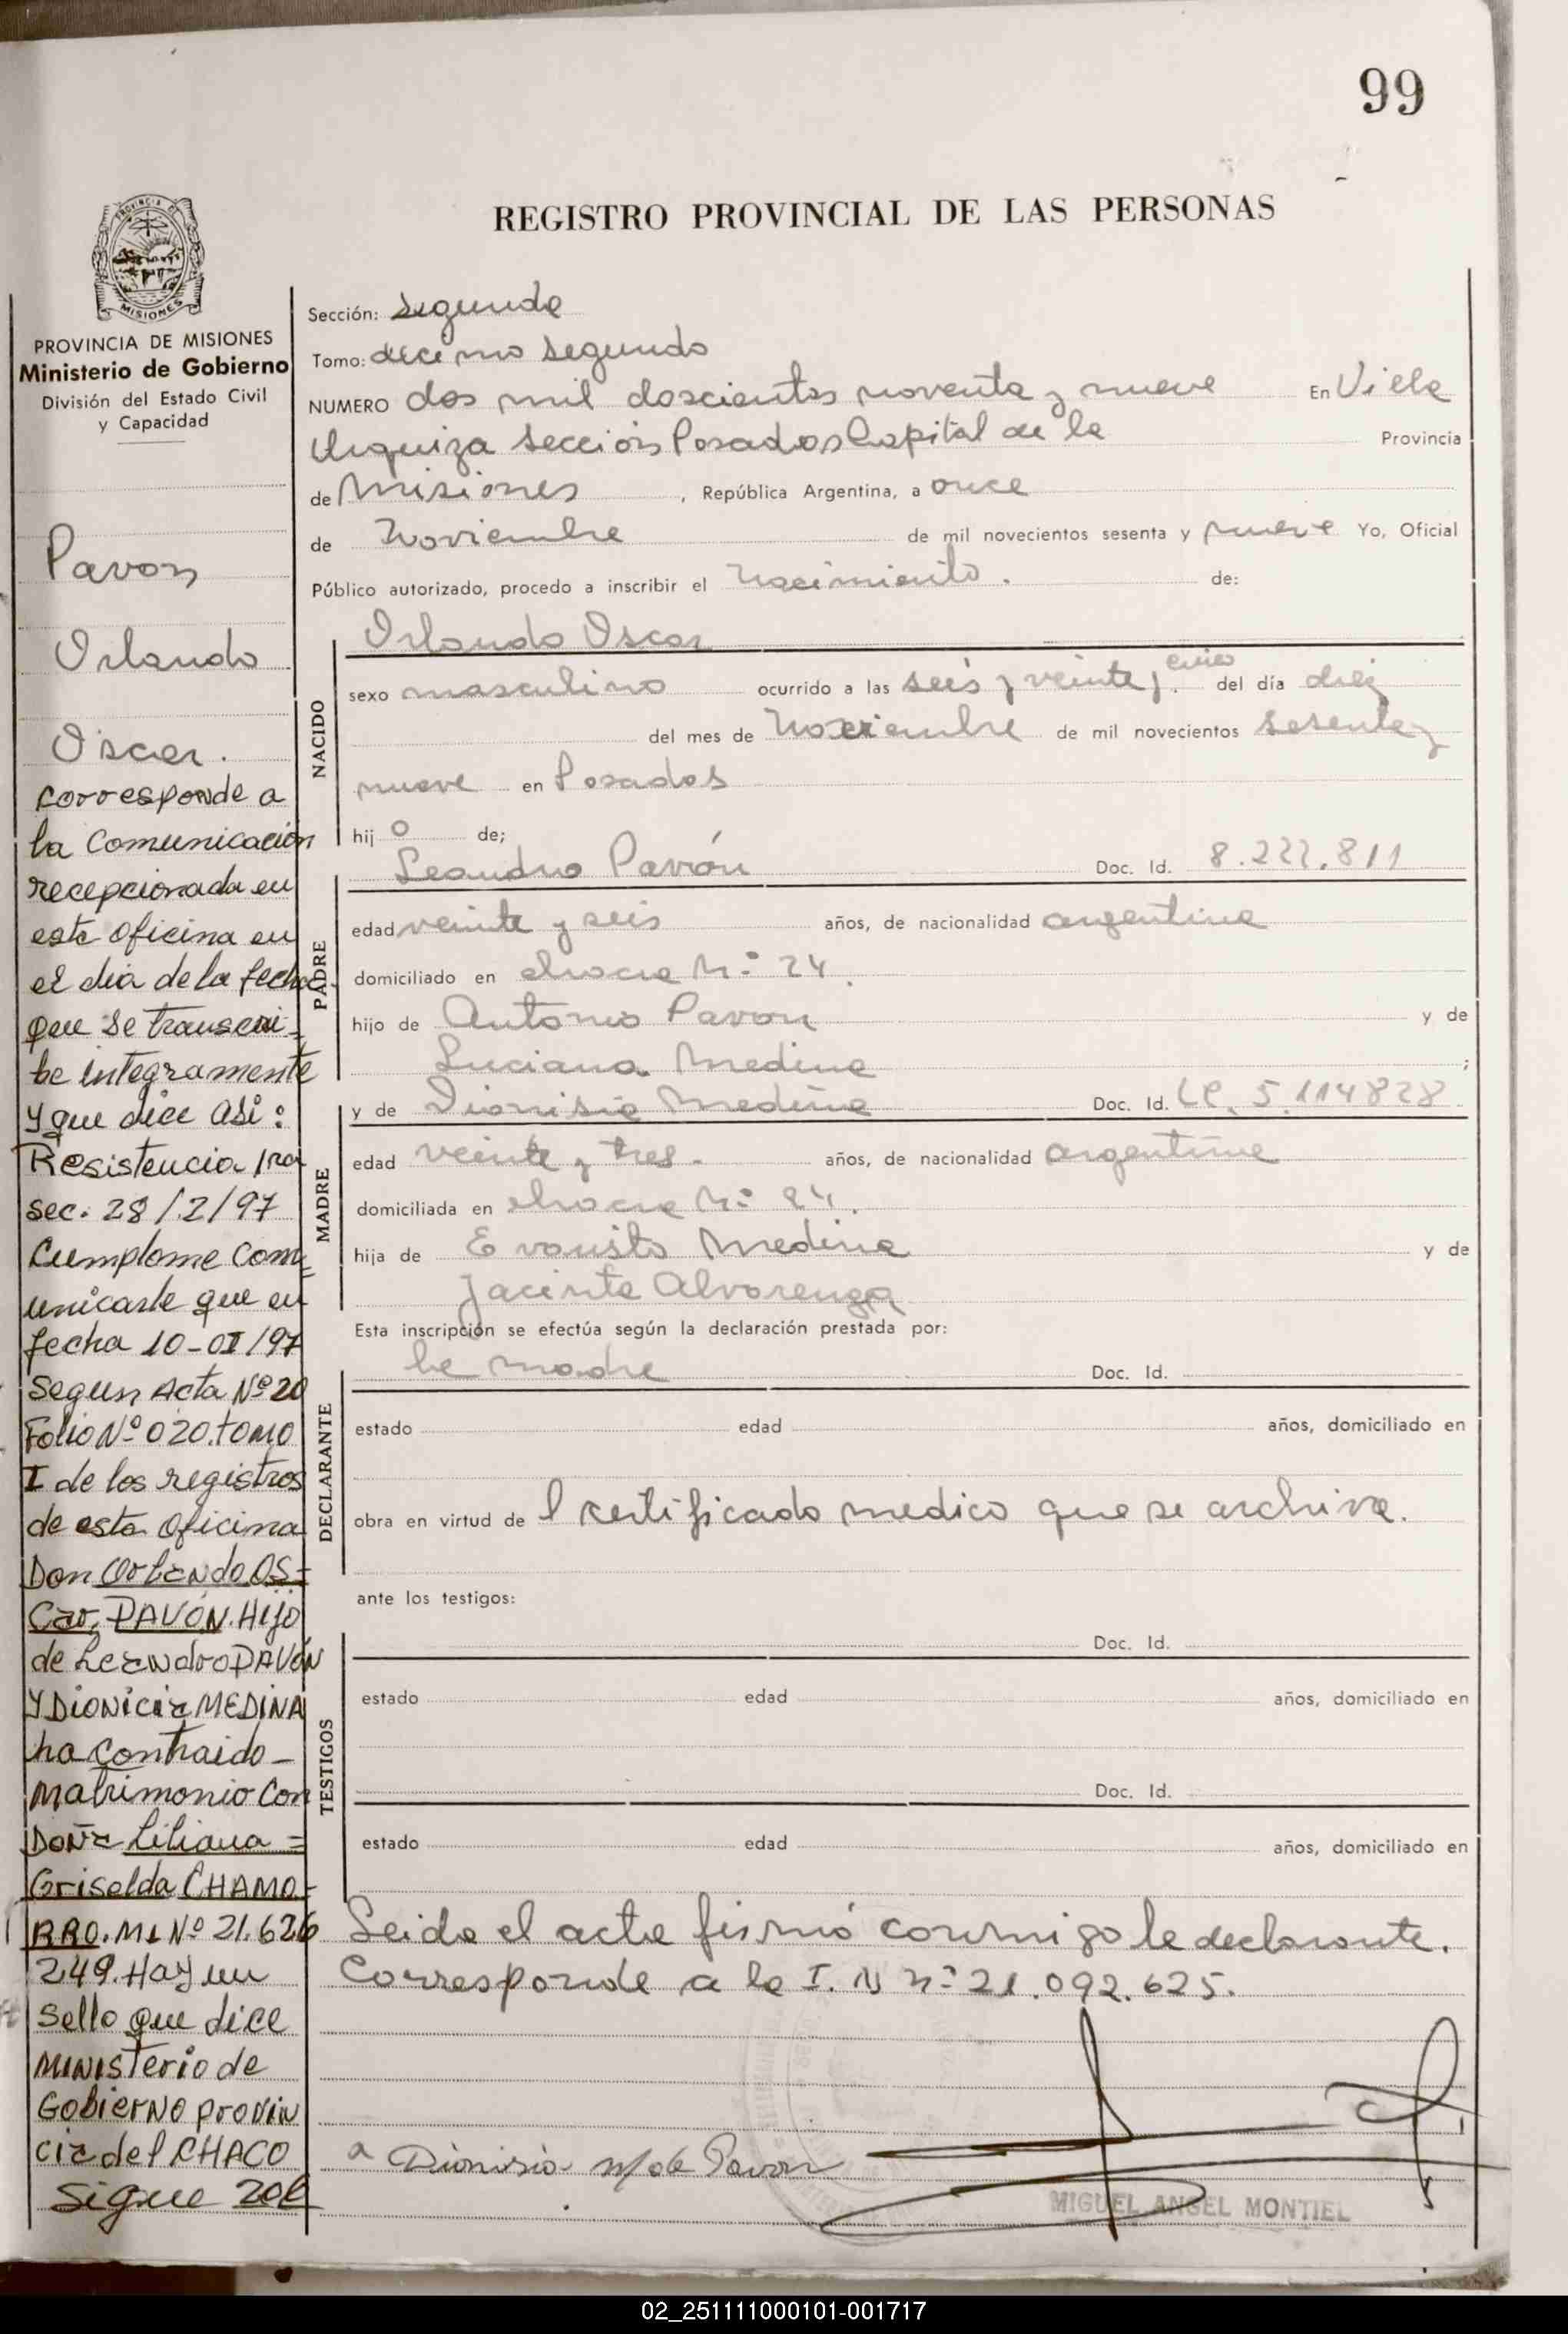 99
REGISTRO PROVINCIAL DE LAS PERSONAS
PROVINCIA DE MISIONES
Ministerio de Gobierno
División del Estado Civil
y Capacidad
Pavon
Orlando
Oscar.
Corresponde a
la Comunicación
recepcionada en
esta oficina en
el dia de la fecha
que se transcri=
be integramente
y que dice asi:
Resistencia 1ra
sec. 28/2/97
Cumplome Com=
unicarle que en
fecha 10-01/97
Segun Acta Nº 20
Folio Nº 020. tomo
I de los registros
de esta oficina
Don Orlando OS=
Car, PAVÓN. Hijo
de LeandroPAVÓN
Y Dionicia MEDINA
ha Contraido-
Matrimonio Con
Doña Liliana=
Griselda CHAMO-
RRO. MI Nº 21.626
249. Hay un
Sello que dice
MINISTerio de
GobierNo proviN
cia del CHACO
Sigue 20
Sección: Segunda
Tomo: decimo segundo
NUMERO dos mil doscientos noventa y nueve En Villa
Urquiza Sección Posadas Capital de la Provincia
de Misiones, República Argentina, a once
de Noviembre de mil novecientos sesenta y nueve Yo, Oficial
Público autorizado, procedo a inscribir el nacimiento. de:
NACIDO
Orlando Oscar
sexo masculino ocurrido a las seis y veinte y cinco del día diez
del mes de Noviembre de mil novecientos sesenta y
nueve en Posadas
hijo de;
Leandro Pavón Doc. Id. 8.222.811
PADRE
edad veinte y seis años, de nacionalidad argentina
domiciliado en chacra N.º 24.
hijo de Antonio Pavon y de
Luciana Medina;
y de Dionisia Medina Doc. Id. LC. 5.114828
MADRE
edad veinte y tres. años, de nacionalidad argentina
domiciliada en chacra N.º 24.
hija de Evaristo Medina y de
Jacinta Alvarenga
Esta inscripción se efectúa según la declaración prestada por:
la madre Doc. Id.
DECLARANTE
estado edad años, domiciliado en
obra en virtud de l certificado medico que se archiva.
ante los testigos:
Doc. Id.
TESTIGOS
estado edad años, domiciliado en
Doc. Id.
estado edad años, domiciliado en
Leida el acta firmó conmigo la declarante.
Corresponde a la I. N nº 21.092.625.
a Dionisia m/de Pavon
MIGUEL ANGEL MONTIEL
02_251111000101-001717